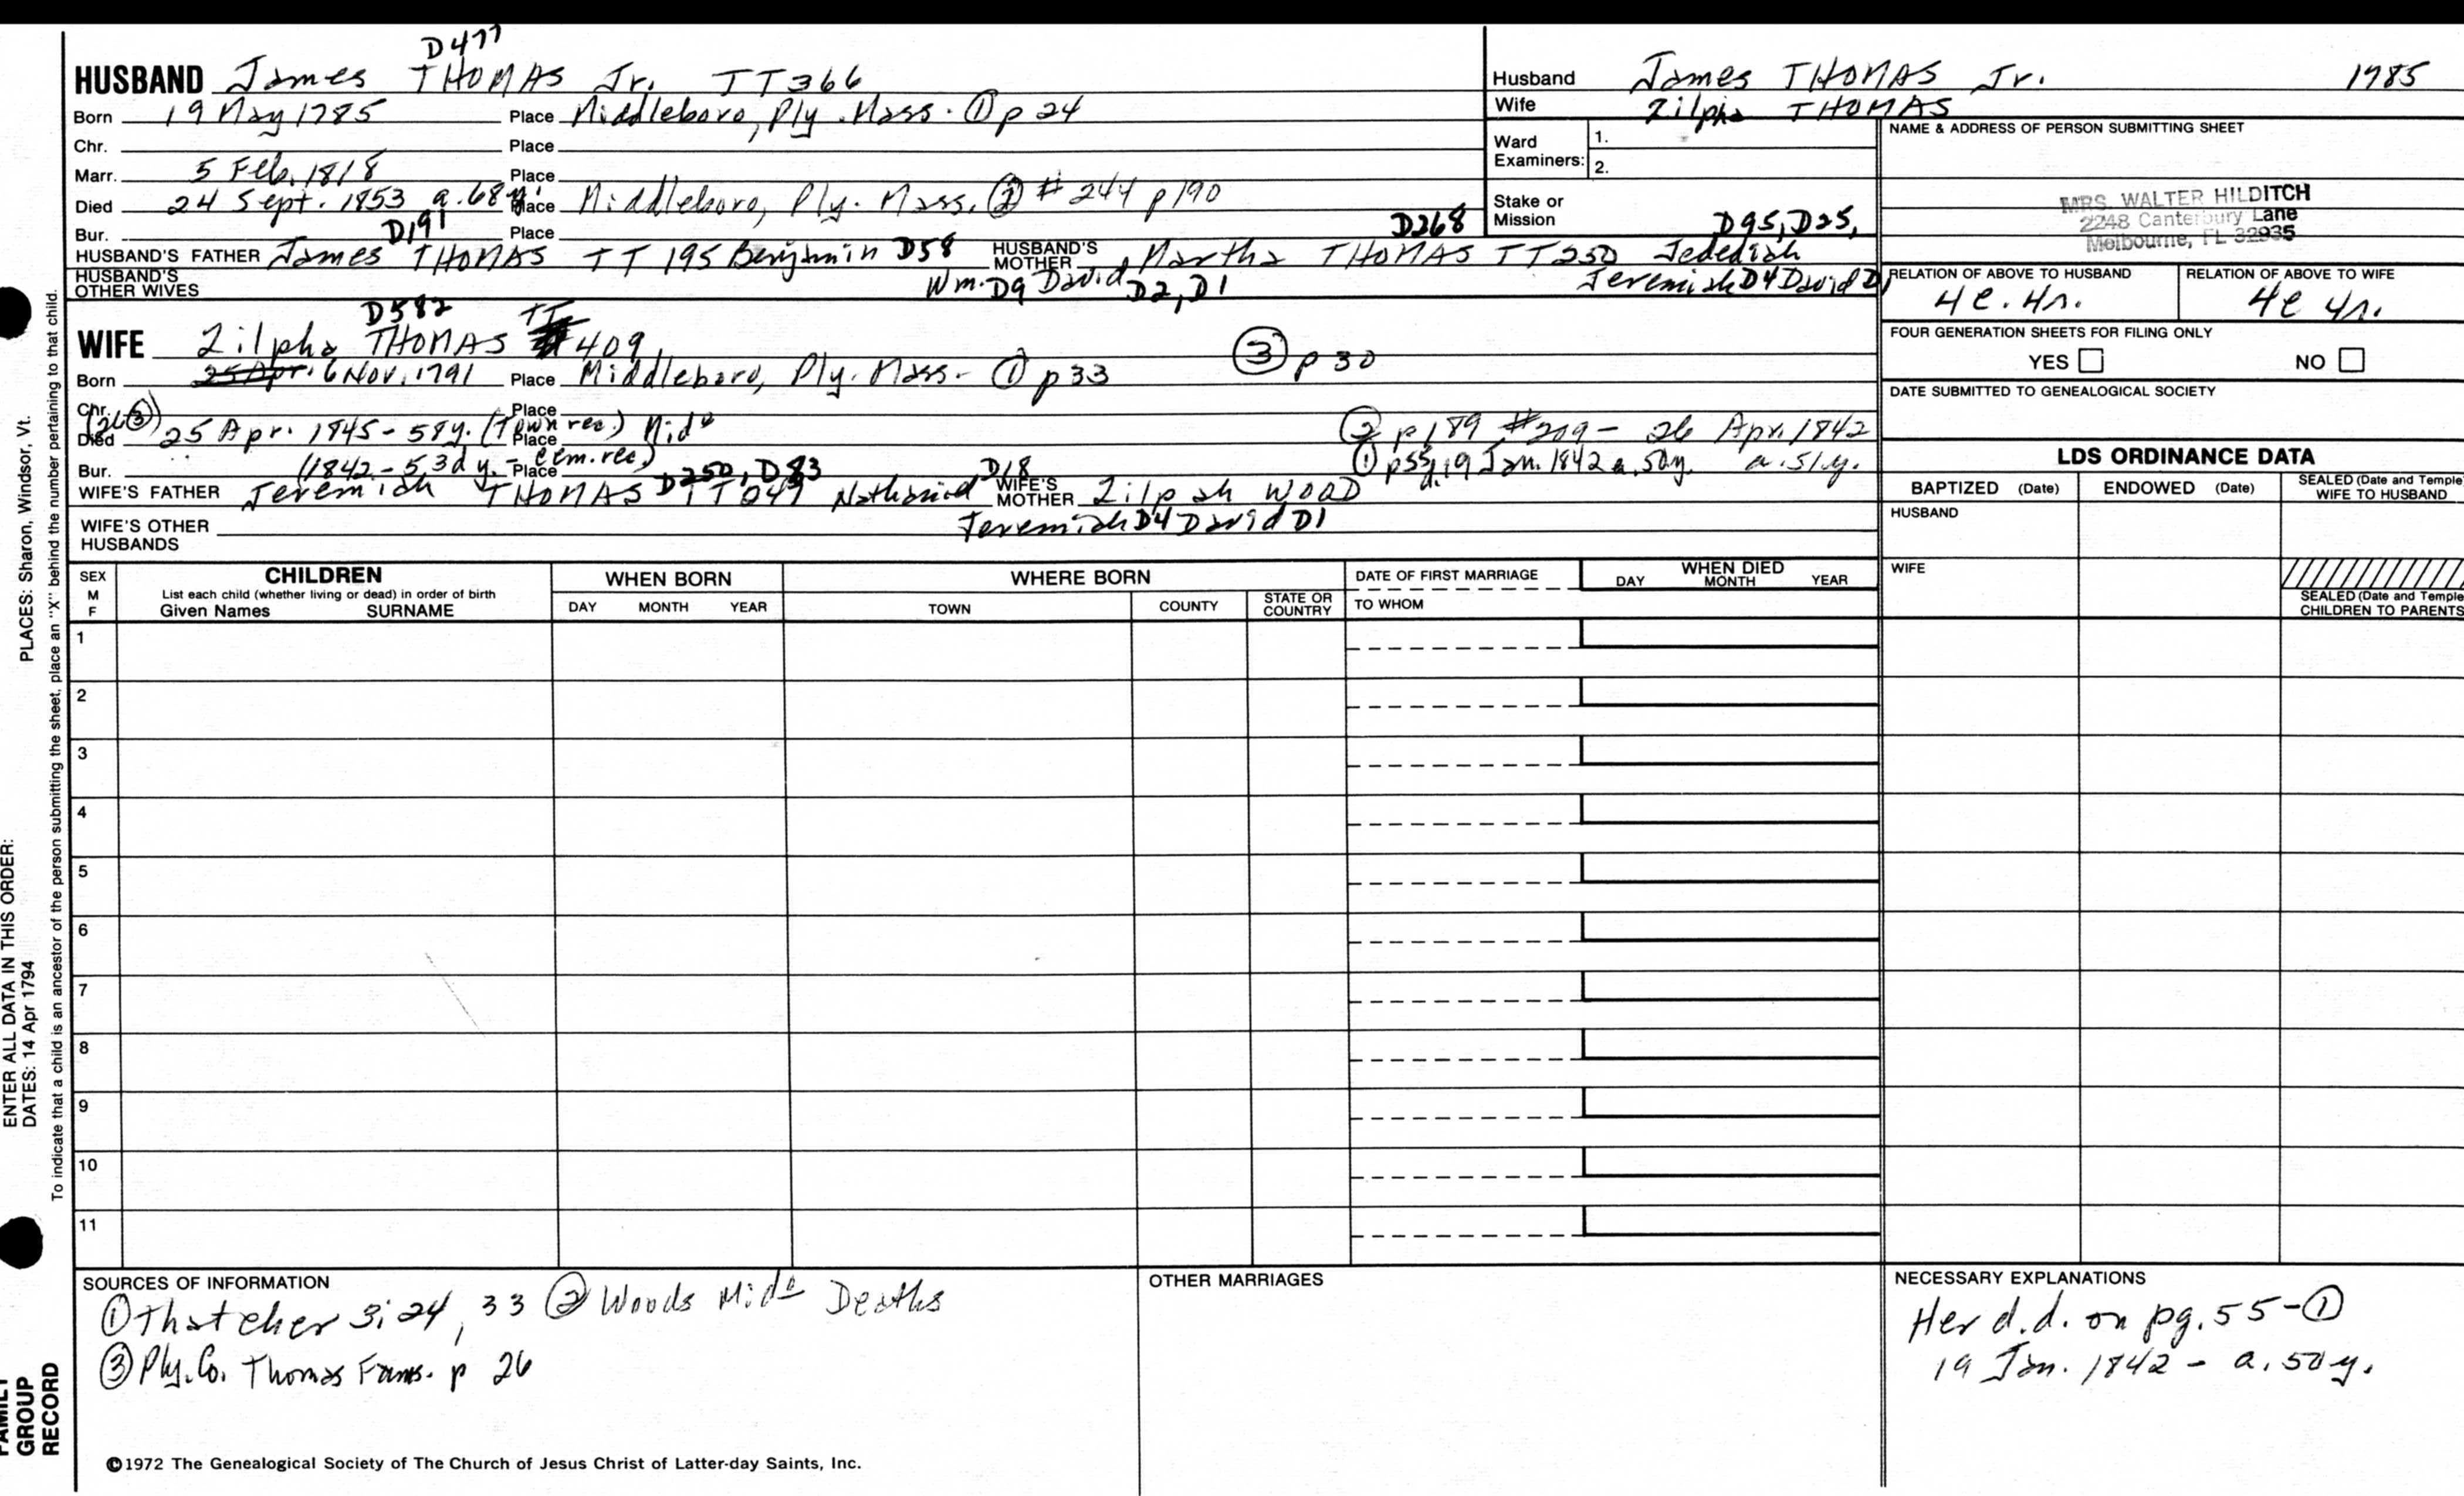 D477
HUSBAND James THOMAS Jr. TT366
Born 19 May 1785 Place Middleboro, Ply. Mass. ① p 24
Chr. Place
Marr. 5 Feb. 1818 Place
Died 24 Sept. 1853 a. 68 y. Place Middleboro, Ply. Mass. ② # 244 p190
Bur. Place
D191 D268 D95, D25,
HUSBAND'S FATHER James THOMAS TT 195 Benjamin D58 HUSBAND'S MOTHER Martha THOMAS TT250 Jedediah
HUSBAND'S OTHER WIVES Wm. D9 David D2, D1 Jeremiah D4 David D1
Husband James THOMAS Jr. 1785
Wife Zilpha THOMAS
Ward Examiners: 1.
2.
Stake or Mission
NAME & ADDRESS OF PERSON SUBMITTING SHEET
MRS. WALTER HILDITCH
2248 Canterbury Lane
Melbourne, FL 32935
RELATION OF ABOVE TO HUSBAND RELATION OF ABOVE TO WIFE
4c. 4r. 4c 4r.
FOUR GENERATION SHEETS FOR FILING ONLY
YES NO
DATE SUBMITTED TO GENEALOGICAL SOCIETY
D582 TT
WIFE Zilpha THOMAS # 409
③ p 30
Born 25 Apr. 6 Nov. 1791 Place Middleboro, Ply. Mass. - ① p 33
Chr. Place
(26 ③)
Died 25 Apr. 1845 - 58 y. (Town rec.) Place Mido ② p 189 #209 - 26 Apr. 1842
Bur. (1842 - 53d y. - cem. rec.) Place ① p55, d. 19 Jan. 1842 a. 50 y. a. 51 y.
D250, D83 D18
WIFE'S FATHER Jeremiah THOMAS TT 047 Nathaniel WIFE'S MOTHER Zilpah WOOD
Jeremiah D4 David D1
WIFE'S OTHER HUSBANDS
LDS ORDINANCE DATA
BAPTIZED (Date) ENDOWED (Date) SEALED (Date and Temple) WIFE TO HUSBAND
HUSBAND
WIFE
SEALED (Date and Temple) CHILDREN TO PARENTS
SEX M F
CHILDREN
List each child (whether living or dead) in order of birth
Given Names SURNAME
WHEN BORN
DAY MONTH YEAR
WHERE BORN
TOWN COUNTY STATE OR COUNTRY
DATE OF FIRST MARRIAGE
TO WHOM
WHEN DIED
DAY MONTH YEAR
1
2
3
4
5
6
7
8
9
10
11
SOURCES OF INFORMATION
① Thatcher 3; 24, 33 ② Woods Mido Deaths
③ Ply. Co. Thomas Fams. p 26
OTHER MARRIAGES
NECESSARY EXPLANATIONS
Her d.d. on pg. 55 - ①
19 Jan. 1842 - a. 50 y.
©1972 The Genealogical Society of The Church of Jesus Christ of Latter-day Saints, Inc.
PLACES: Sharon, Windsor, Vt.
To indicate that a child is an ancestor of the person submitting the sheet, place an "X" behind the number pertaining to that child.
ENTER ALL DATA IN THIS ORDER:
DATES: 14 Apr 1794
FAMILY GROUP RECORD